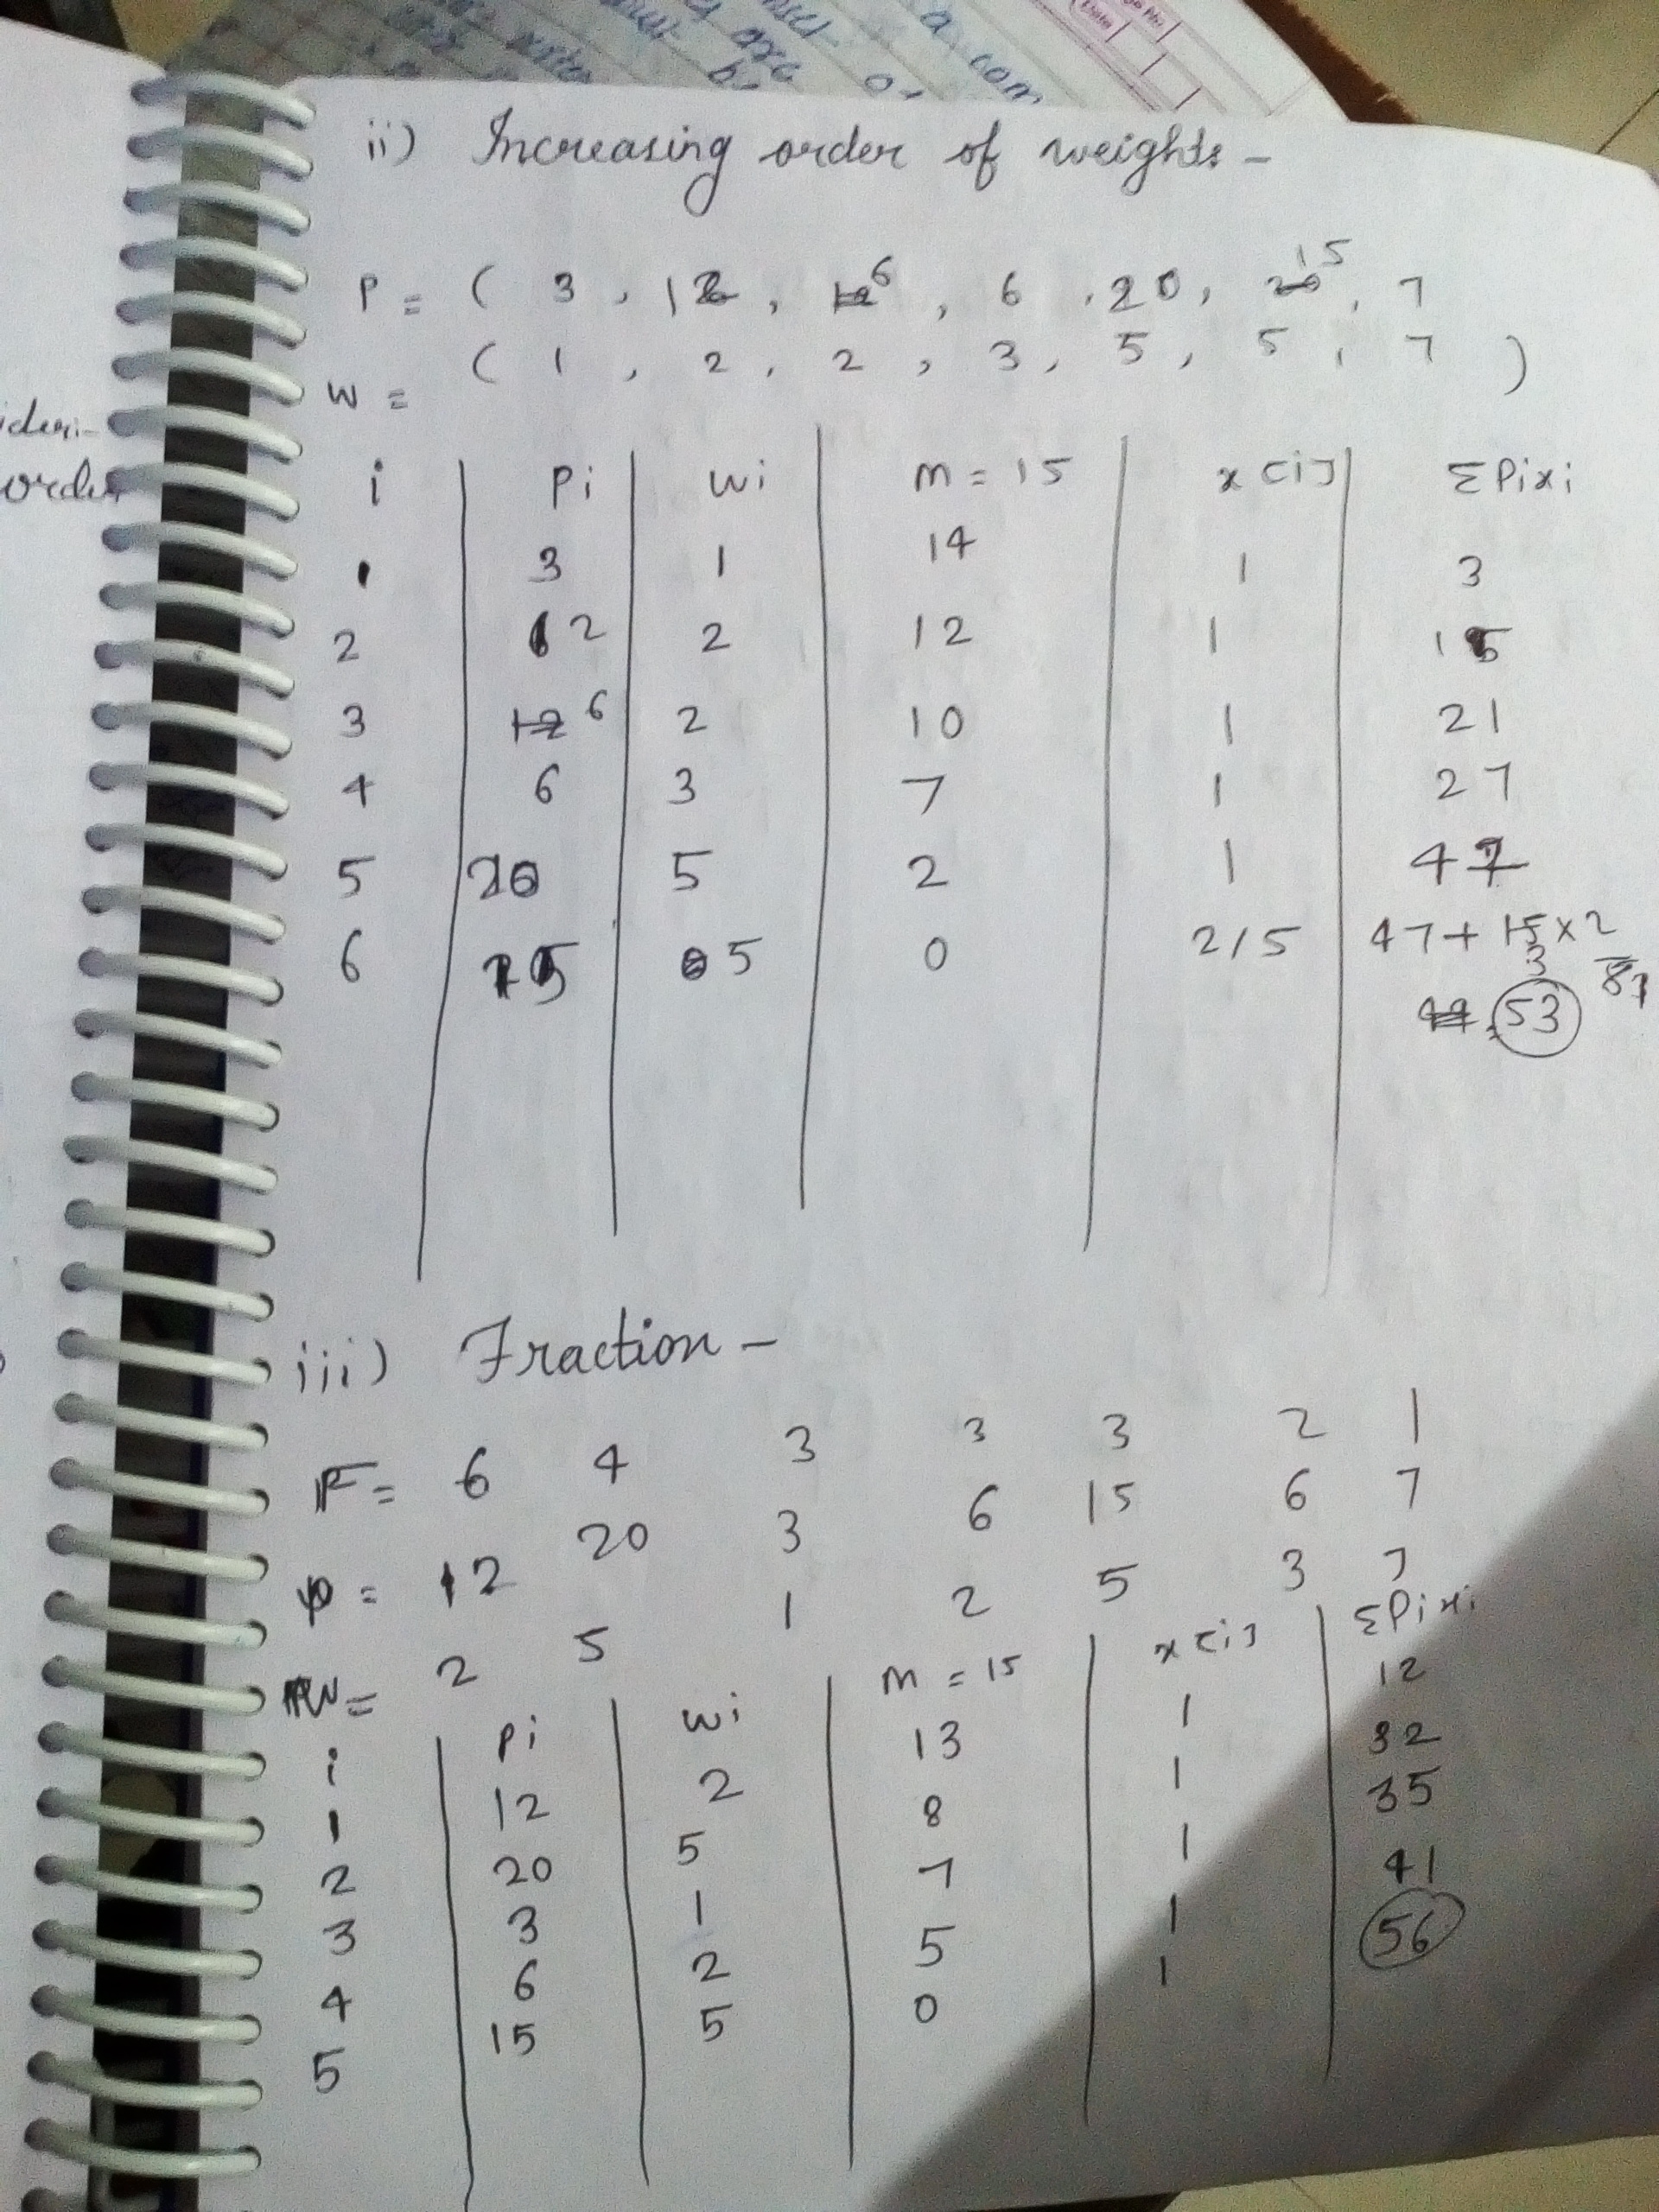 ii) Increasing order of weights -
P = ( 3 , 12 , 6 , 6 , 20 , 15 , 7
W = ( 1 , 2 , 2 , 3 , 5 , 5 , 7 )
i Pi wi m = 15 x[i] ΣPixi
1 3 1 14 1 3
2 12 2 12 1 15
3 6 2 10 1 21
4 6 3 7 1 27
5 20 5 2 1 47
6 15 5 0 2/5 47 + 15 x 2
3
53
iii) Fraction -
F = 6 4 3 3 3 2 1
P = 12 20 3 6 15 6 7
W = 2 5 1 2 5 3 7
i Pi wi m = 15 x[i] ΣPixi
1 12 2 13 1 12
2 20 5 8 1 32
3 3 1 7 1 35
4 6 2 5 1 41
5 15 5 0 1 56
order
a com